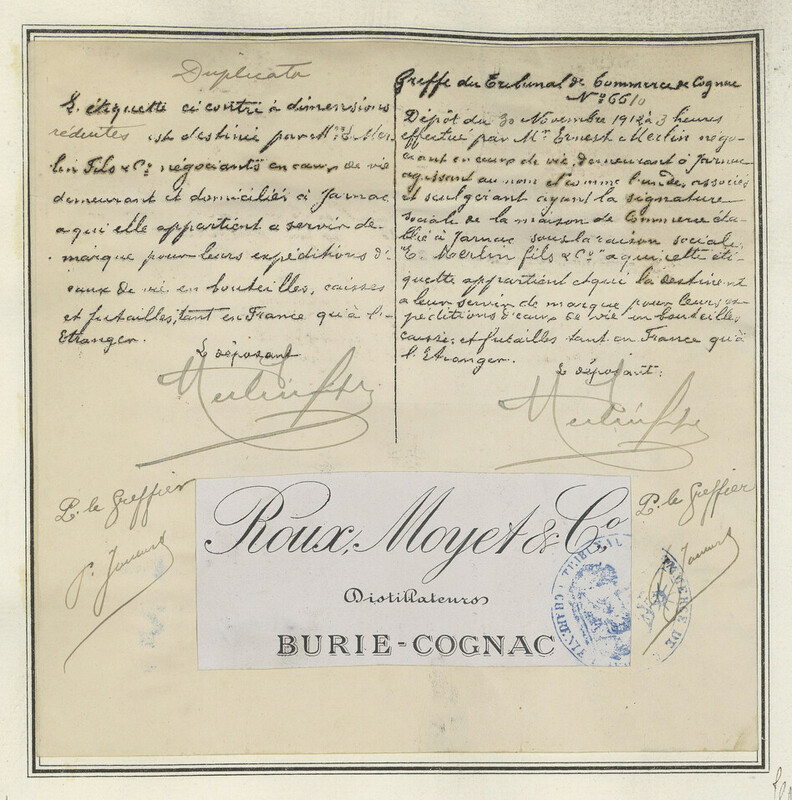 Duplicata
L'étiquette ci contre à dimensions
réduites est destinée par MM. E. Mer-
lin Fils & Cº négociants en eaux de vie
demeurant et domiciliés à Jarnac
a qui elle appartient a servir de
marque pour leurs expéditions d'
eaux de vie en bouteilles, caisses
et futailles, tant en France qu'à l'-
Etranger.
Le déposant
Greffe du Tribunal de Commerce de Cognac
Nº 6610
Dépôt du 30 Novembre 1912 à 3 heures
effectué par Mr Ernest Merlin négo-
ciant en eaux de vie, demeurant à Jarnac
agissant au nom et comme l'un des associés
et seul gérant ayant la signature
sociale de la maison de Commerce éta-
blie à Jarnac sous la raison sociale
"E. Merlin fils & Cº" a qui cette éti-
quette appartient et qui la destinent
a leur servir de marque pour leurs ex-
péditions d'eaux de vie en bouteilles
caisses et futailles tant en France qu'à
l'Etranger.
Le déposant:
P. le Greffier
P. le Greffier
Roux, Moyet & Cº
Distillateurs
BURIE-COGNAC
TRIBUNAL
CHARENTE